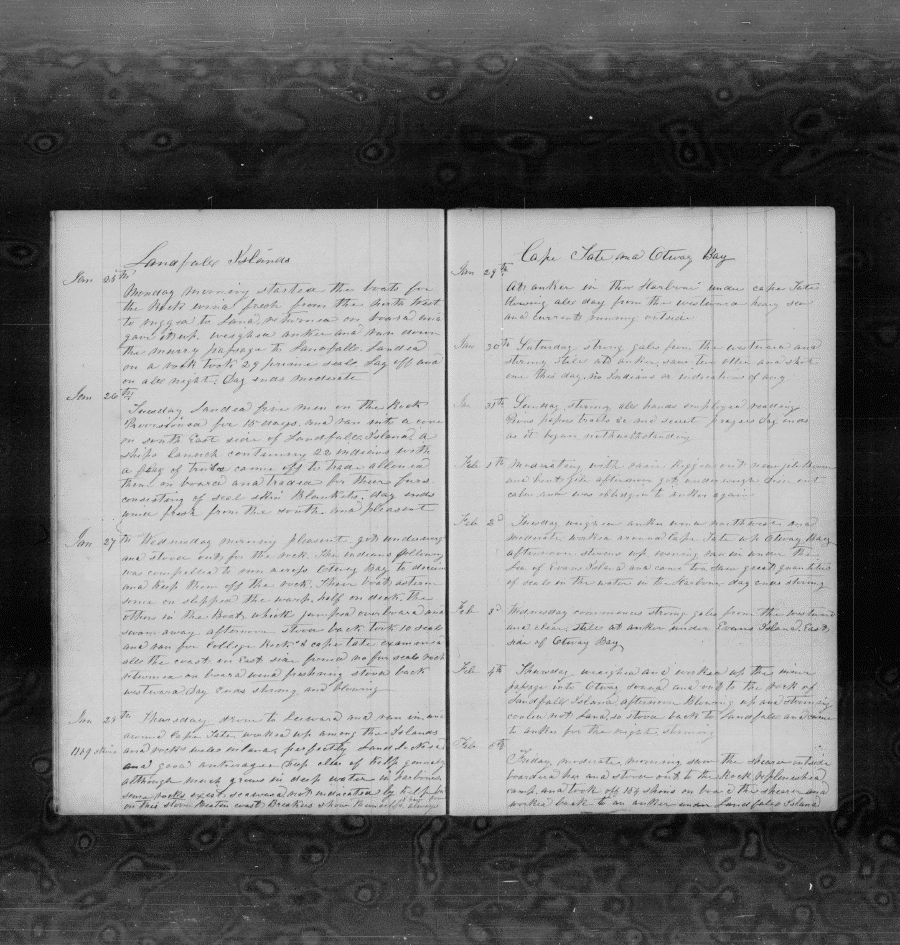 Landfall Islands
Jan 25th
Monday morning started the boats for
the Rocks wind fresh from the North West
to rugged to Land, returned on board and
gave it up. weighed anker and ran down
the merry passage to Landfall. Landed
on a rock took 29 prime seals Lay off and
on all night. Day ends moderate
Jan 26th
Tuesday Landed five men on the Rock
Provisioned for 15 days. and ran into a cove
on South East side of Landfall Island, a
ships launch containing 22 indians with
a flag of truce came off to trade allowed
them on board and traded for their furs
consisting of seal skin Blankets. day ends
wind fresh from the South. and pleasant
Jan 27th Wednesday morning pleasant got underway
and stood out for the rock. The indians following
was compelled to run across Otway Bay to
and keep them off the rock. Their boat astern
some on slipped the warp, half on deck the
others in the Boat, which jumped overboard and
swam away afternoon stood back took 10 seals
and ran for College Rocks & cape tate examined
all the coast on East side found no fur seals
returned on board wind freshning stood back
westward day Ends strong and blowing
Jan 28th Thursday to Leeward and ran in
around Cape Tate, worked up among the Islands
1139 skins and rocks perfectly Landlocked
and good ankerage Keep clear of kelp generally
although much grows in deep water in harbours
some rocks exist seaward not indicated by kelp
on this storm beaten coast. Breakers show themselves always
Cape Tate and Otway Bay
Jan 29th
At anker in this Harbour under cape Tate
Blowing all day from the westward heavy sea
and current running outside
Jan 30th Saturday strong gales from the westward and
strong still at anker, saw two otter and shot
one this day. no Indians or indication of any
Jan 31st Sunday, strong all hands employed reading
News papers and secret prayers Day ends
as it began notwithstanding
Feb 1th Moderating with rain Rigged out new jib Boom
and bent jib afternoon got underweigh
calm and was obliged to anker again
Feb 2d Tuesday weighed anker wind northwest and
moderate worked around Cape Tate up Otway Bay
afternoon storms up evening ran in under the
Lee of Evans Island and came too saw great quantities
of seals in the water in the Harbour day ends strong
Feb 3d Wednesday commences strong gales from the westward
and clear, still at anker under Evans Island. East
side of Otway Bay
Feb 4th Thursday weighed and worked up the inner
passage into Otway sound and out to the rock of
Landfall Island, afternoon Blowing up and strong
could not Land, so stood back to Landfall and came
to anker for the night, strong
Feb 5th
Friday, moderate morning saw the shearer outside
boarded her and stood out to the Rock replenished
camp, and took off 184 skins on board the shearer and
worked back to an anker under Landfall Island